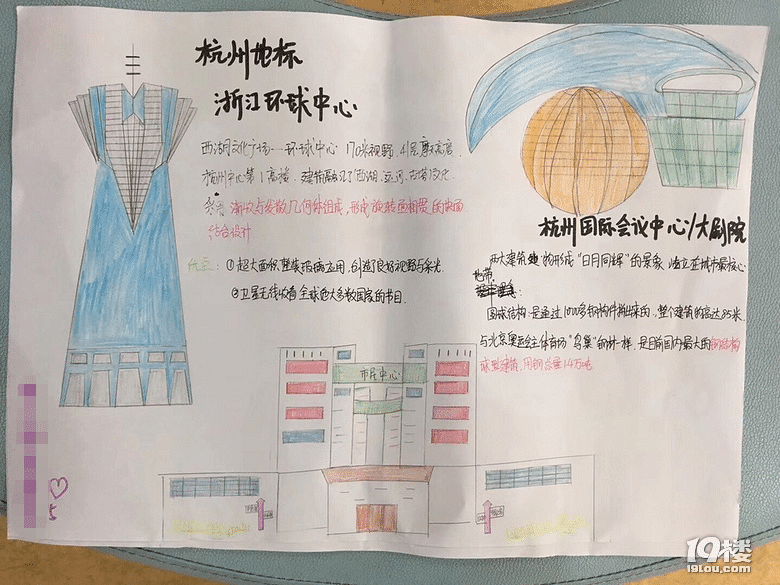 杭州地标
浙江环球中心
西湖文化广场——环球中心 170米视野,41层摩天高层
杭州中心第1高楼、建筑融汇了西湖、运河、古塔文化
渐收与发散几何体组成,形成旋转面相贯的曲面
结合设计
优点:①超大面积整块玻璃应用,创造了良好视野与采光
②卫星天线收看全球绝大多数国家的节目
杭州国际会议中心/大剧院
两大建筑物形成"日月同辉"的景象,矗立在城市最核心
地带
圆球结构是通过1000多根构件拼出来的,整个建筑的高达85米
与北京奥运会主体育场"鸟巢"钢材一样,是目前国内最大的钢结构
球型建筑,用钢总量1.4万吨
市民中心
5
19楼
19lou.com